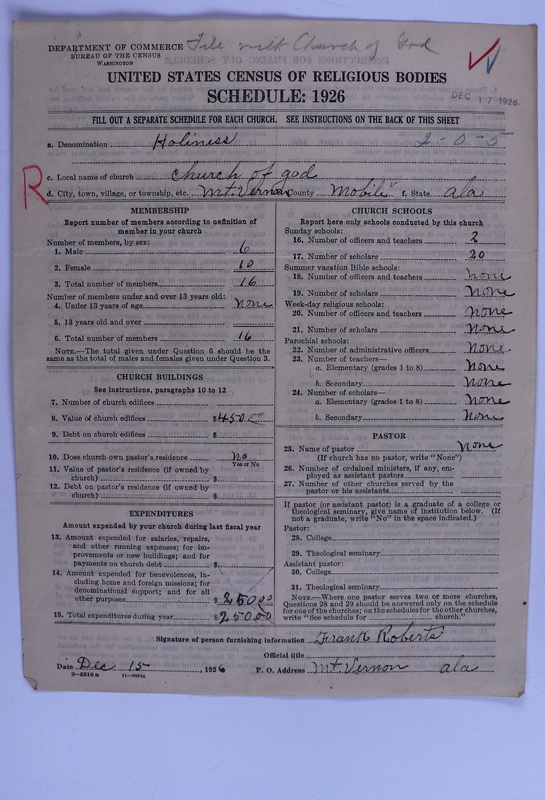 File with Church of God
DEPARTMENT OF COMMERCE
BUREAU OF THE CENSUS
WASHINGTON
UNITED STATES CENSUS OF RELIGIOUS BODIES
SCHEDULE: 1926
DEC 17 1926
FILL OUT A SEPARATE SCHEDULE FOR EACH CHURCH. SEE INSTRUCTIONS ON THE BACK OF THIS SHEET
a. Denomination Holiness 2-0-5
c. Local name of church church of god
R
d. City, town, village, or township, etc. Mt Vernon County Mobile f. State ala
MEMBERSHIP
Report number of members according to definition of
member in your church
Number of members, by sex:
1. Male 6
2. Female 10
3. Total number of members 16
Number of members under and over 13 years old:
4. Under 13 years of age none
5. 13 years old and over
6. Total number of members 16
NOTE.—The total given under Question 6 should be the
same as the total of males and females given under Question 3.
CHURCH BUILDINGS
See instructions, paragraphs 10 to 12
7. Number of church edifices
8. Value of church edifices $450.00
9. Debt on church edifices $
10. Does church own pastor's residence no
Yes or No
11. Value of pastor's residence (if owned by
church) $
12. Debt on pastor's residence (if owned by
church) $
EXPENDITURES
Amount expended by your church during last fiscal year
13. Amount expended for salaries, repairs,
and other running expenses; for im-
provements or new buildings; and for
payments on church debt $
14. Amount expended for benevolences, in-
cluding home and foreign missions; for
denominational support; and for all
other purposes $250.00
15. Total expenditures during year $250.00
CHURCH SCHOOLS
Report here only schools conducted by this church
Sunday schools:
16. Number of officers and teachers 2
17. Number of scholars 20
Summer vacation Bible schools:
18. Number of officers and teachers none
19. Number of scholars None
Week-day religious schools:
20. Number of officers and teachers None
21. Number of scholars None
Parochial schools:
22. Number of administrative officers None
23. Number of teachers—
a. Elementary (grades 1 to 8) None
b. Secondary None
24. Number of scholars—
a. Elementary (grades 1 to 8) None
b. Secondary None
PASTOR
25. Name of pastor None
(If church has no pastor, write "None")
26. Number of ordained ministers, if any, em-
ployed as assistant pastors
27. Number of other churches served by the
pastor or his assistants
If pastor (or assistant pastor) is a graduate of a college or
theological seminary, give name of institution below. (If
not a graduate, write "No" in the space indicated.)
Pastor:
28. College
29. Theological seminary
Assistant pastor:
30. College
31. Theological seminary
NOTE.—Where one pastor serves two or more churches,
Questions 28 and 29 should be answered only on the schedule
for one of the churches; on the schedules for the other churches,
write "See schedule for church."
Signature of person furnishing information Frank Roberts
Official title
Date Dec 15, 1926 P. O. Address Mt Vernon ala